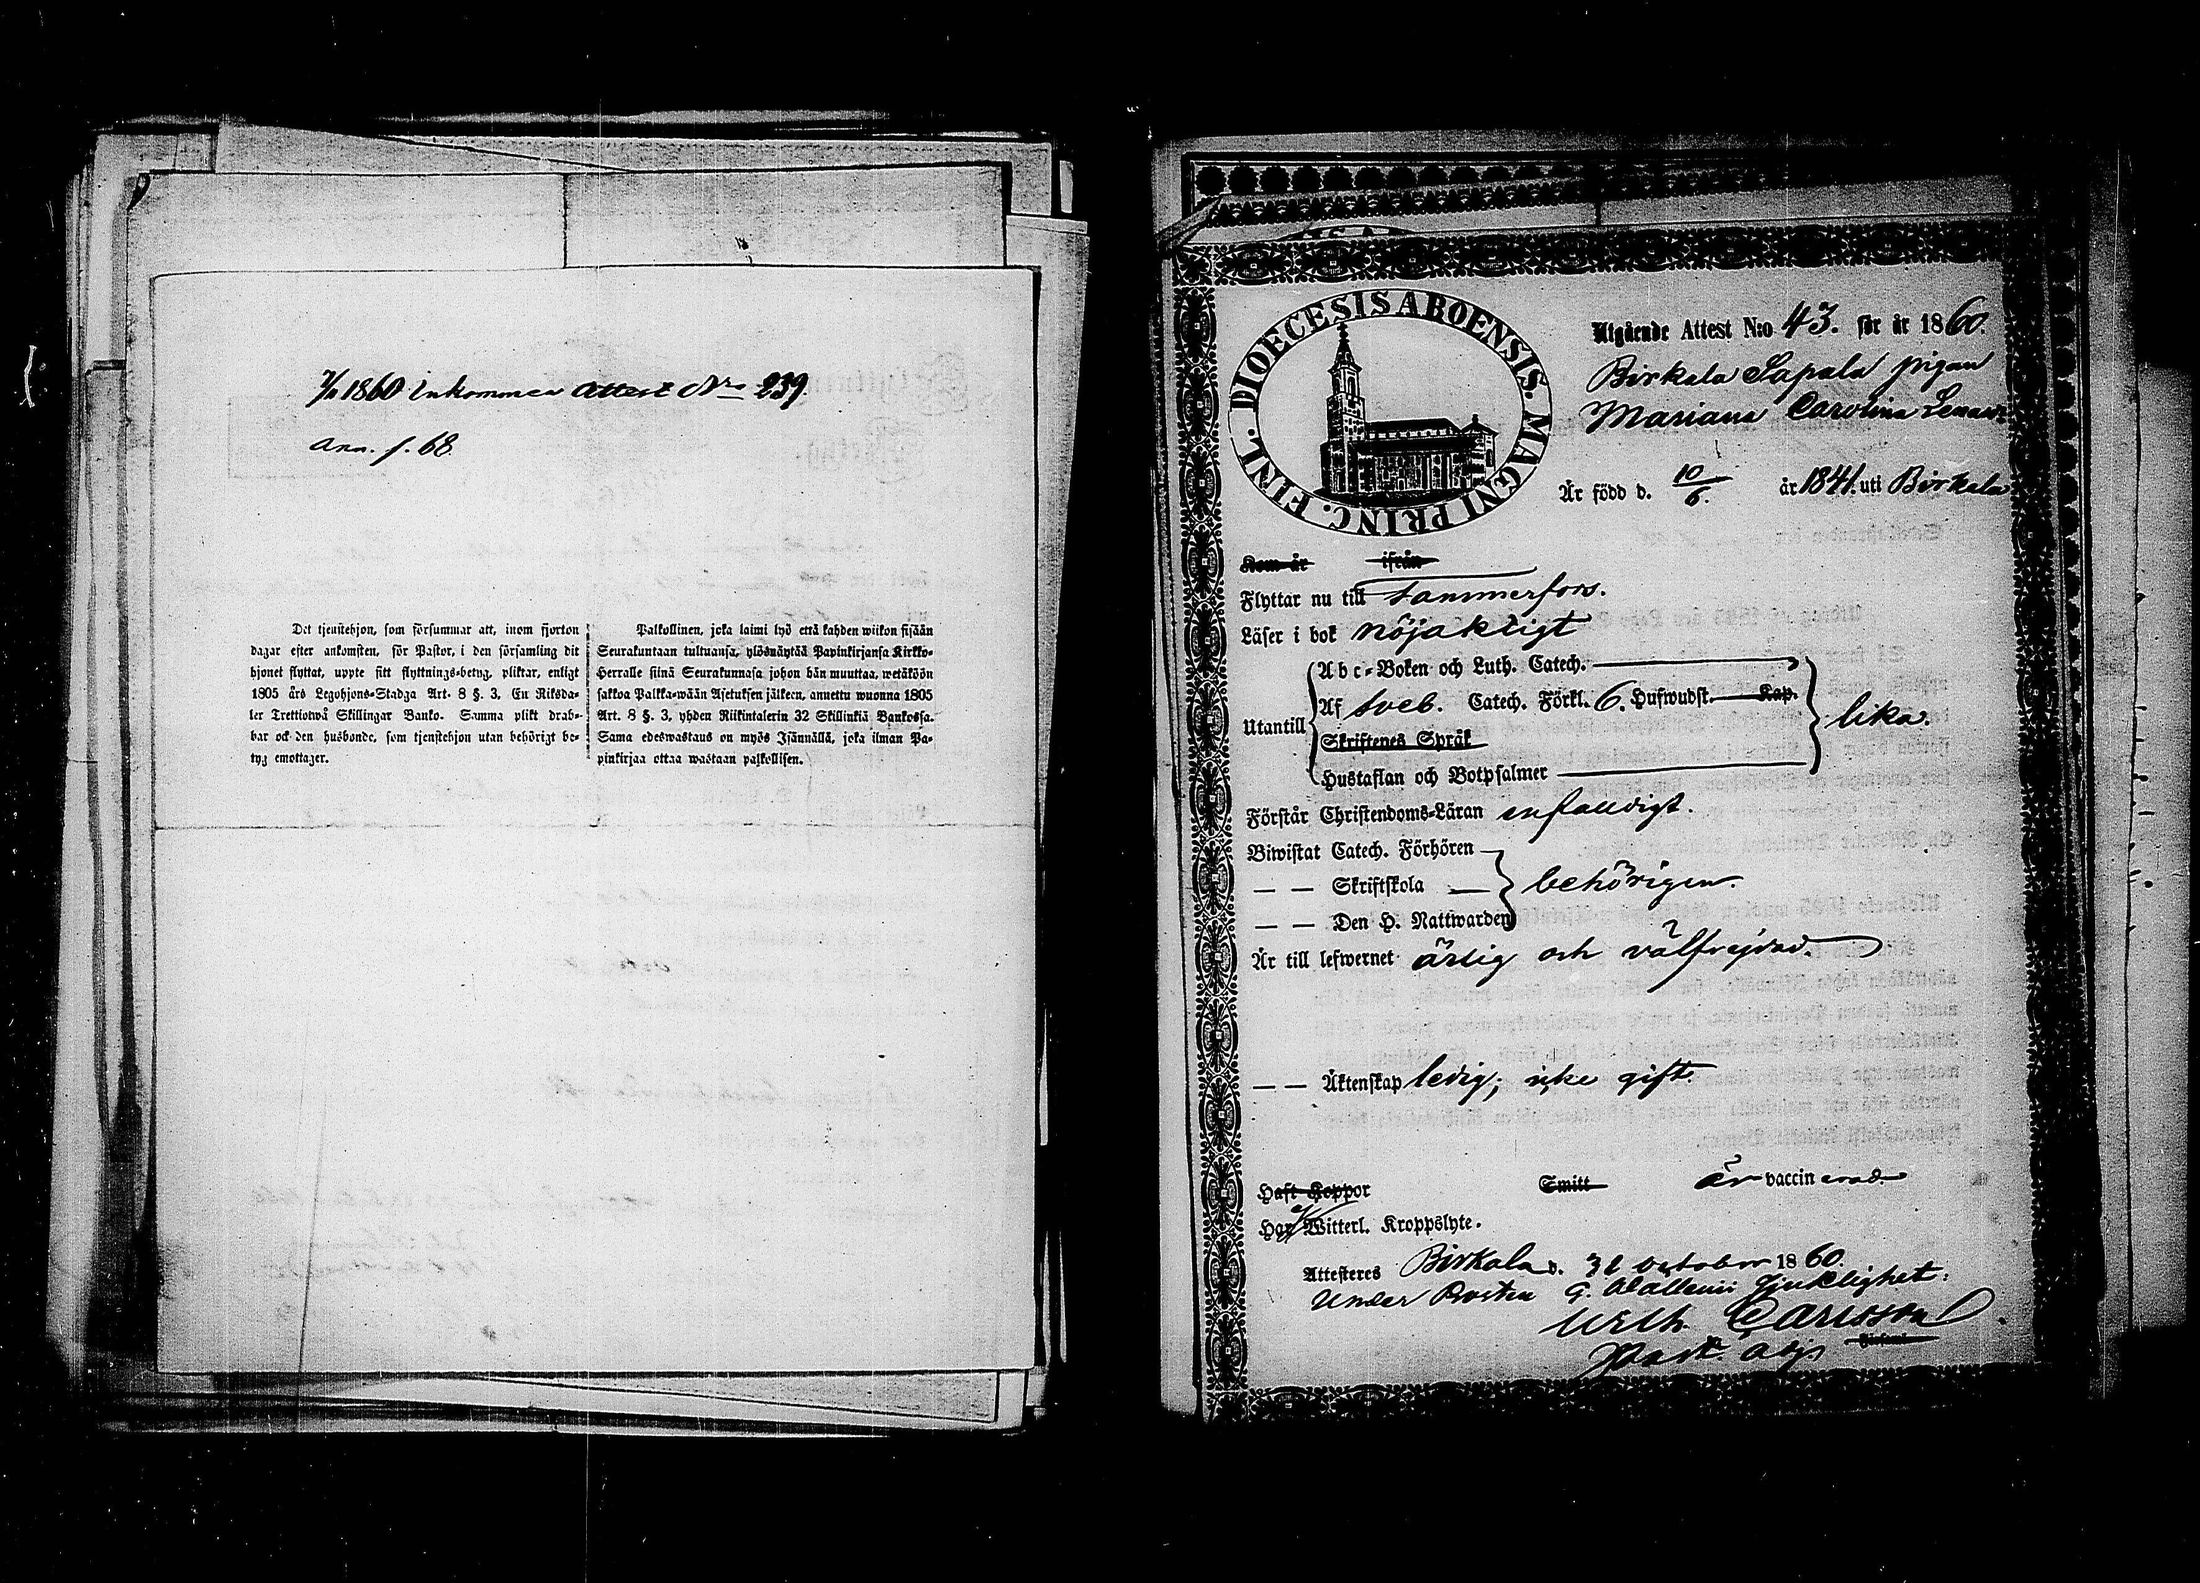 1860 Inkommen Attest Nro 239.
Ann. f. 68.
Det tjenstehjon, som försummar att, inom fjorton
dagar efter ankomsten, för Pastor, i den församling dit
hjonet flyttat, uppte sitt flyttnings-betyg, pliktar, enligt
1805 års Legohjons-Stadga Art. 8 §. 3. En Riksda-
ler Trettiotwå Skillingar Banko. Samma plikt drab-
bar ock den husbonde, som tjenstehjon utan behörigt be-
tyg emottager.
Palkollinen, joka laimi lyö että kahden wiikon sisään
Seurakuntaan tultuansa, ylösnäytää Papinkirjansa Kirkko-
Herralle siinä Seurakunnasa johon hän muuttaa, wetäköön
sakkoa Palkka-wään Asetuksen jälkeen, annettu wuonna 1805
Art. 8 §. 3, yhden Riikintalerin 32 Skillinkiä Bankossa.
Sama edeswastaus on myös Isännällä, joka ilman Pa-
pinkirjaa ottaa wastaan palkollisen.
DIOECESIS ABOENSIS. MAGNI PRINC. FINL.
Utgående Attest N:o 43. för år 1860.
Birkala Sapala pigan
Mariana Carolina
Är född d. 10/6. år 1841. uti Birkala
Kom år ifrån
Flyttar nu till Tammerfors.
Läser i bok nöjaktigt
Abc-Boken och Luth. Catech.
Utantill
Af Sveb. Catech. Förkl. 6. Hufwudst. Kap.
lika.
Skriftenes Språk
Hustaflan och Botpsalmer
Förstår Christendoms-Läran enfaldigt.
Biwistat Catech. Förhören
— — Skriftskola — behörigen.
— — Den H. Nattwarden
Är till lefwernet ärlig och välfrejdad.
— — Äktenskap ledig; icke gift.
Haft Koppor Smitt är vaccinerad
Har Witterl. Kroppslyte.
Attesteres Birkala d. 31 October 1860.
Under Pastor G. Wallenii Sjuklighet:
Wilh. Carlsson
Past. adj.